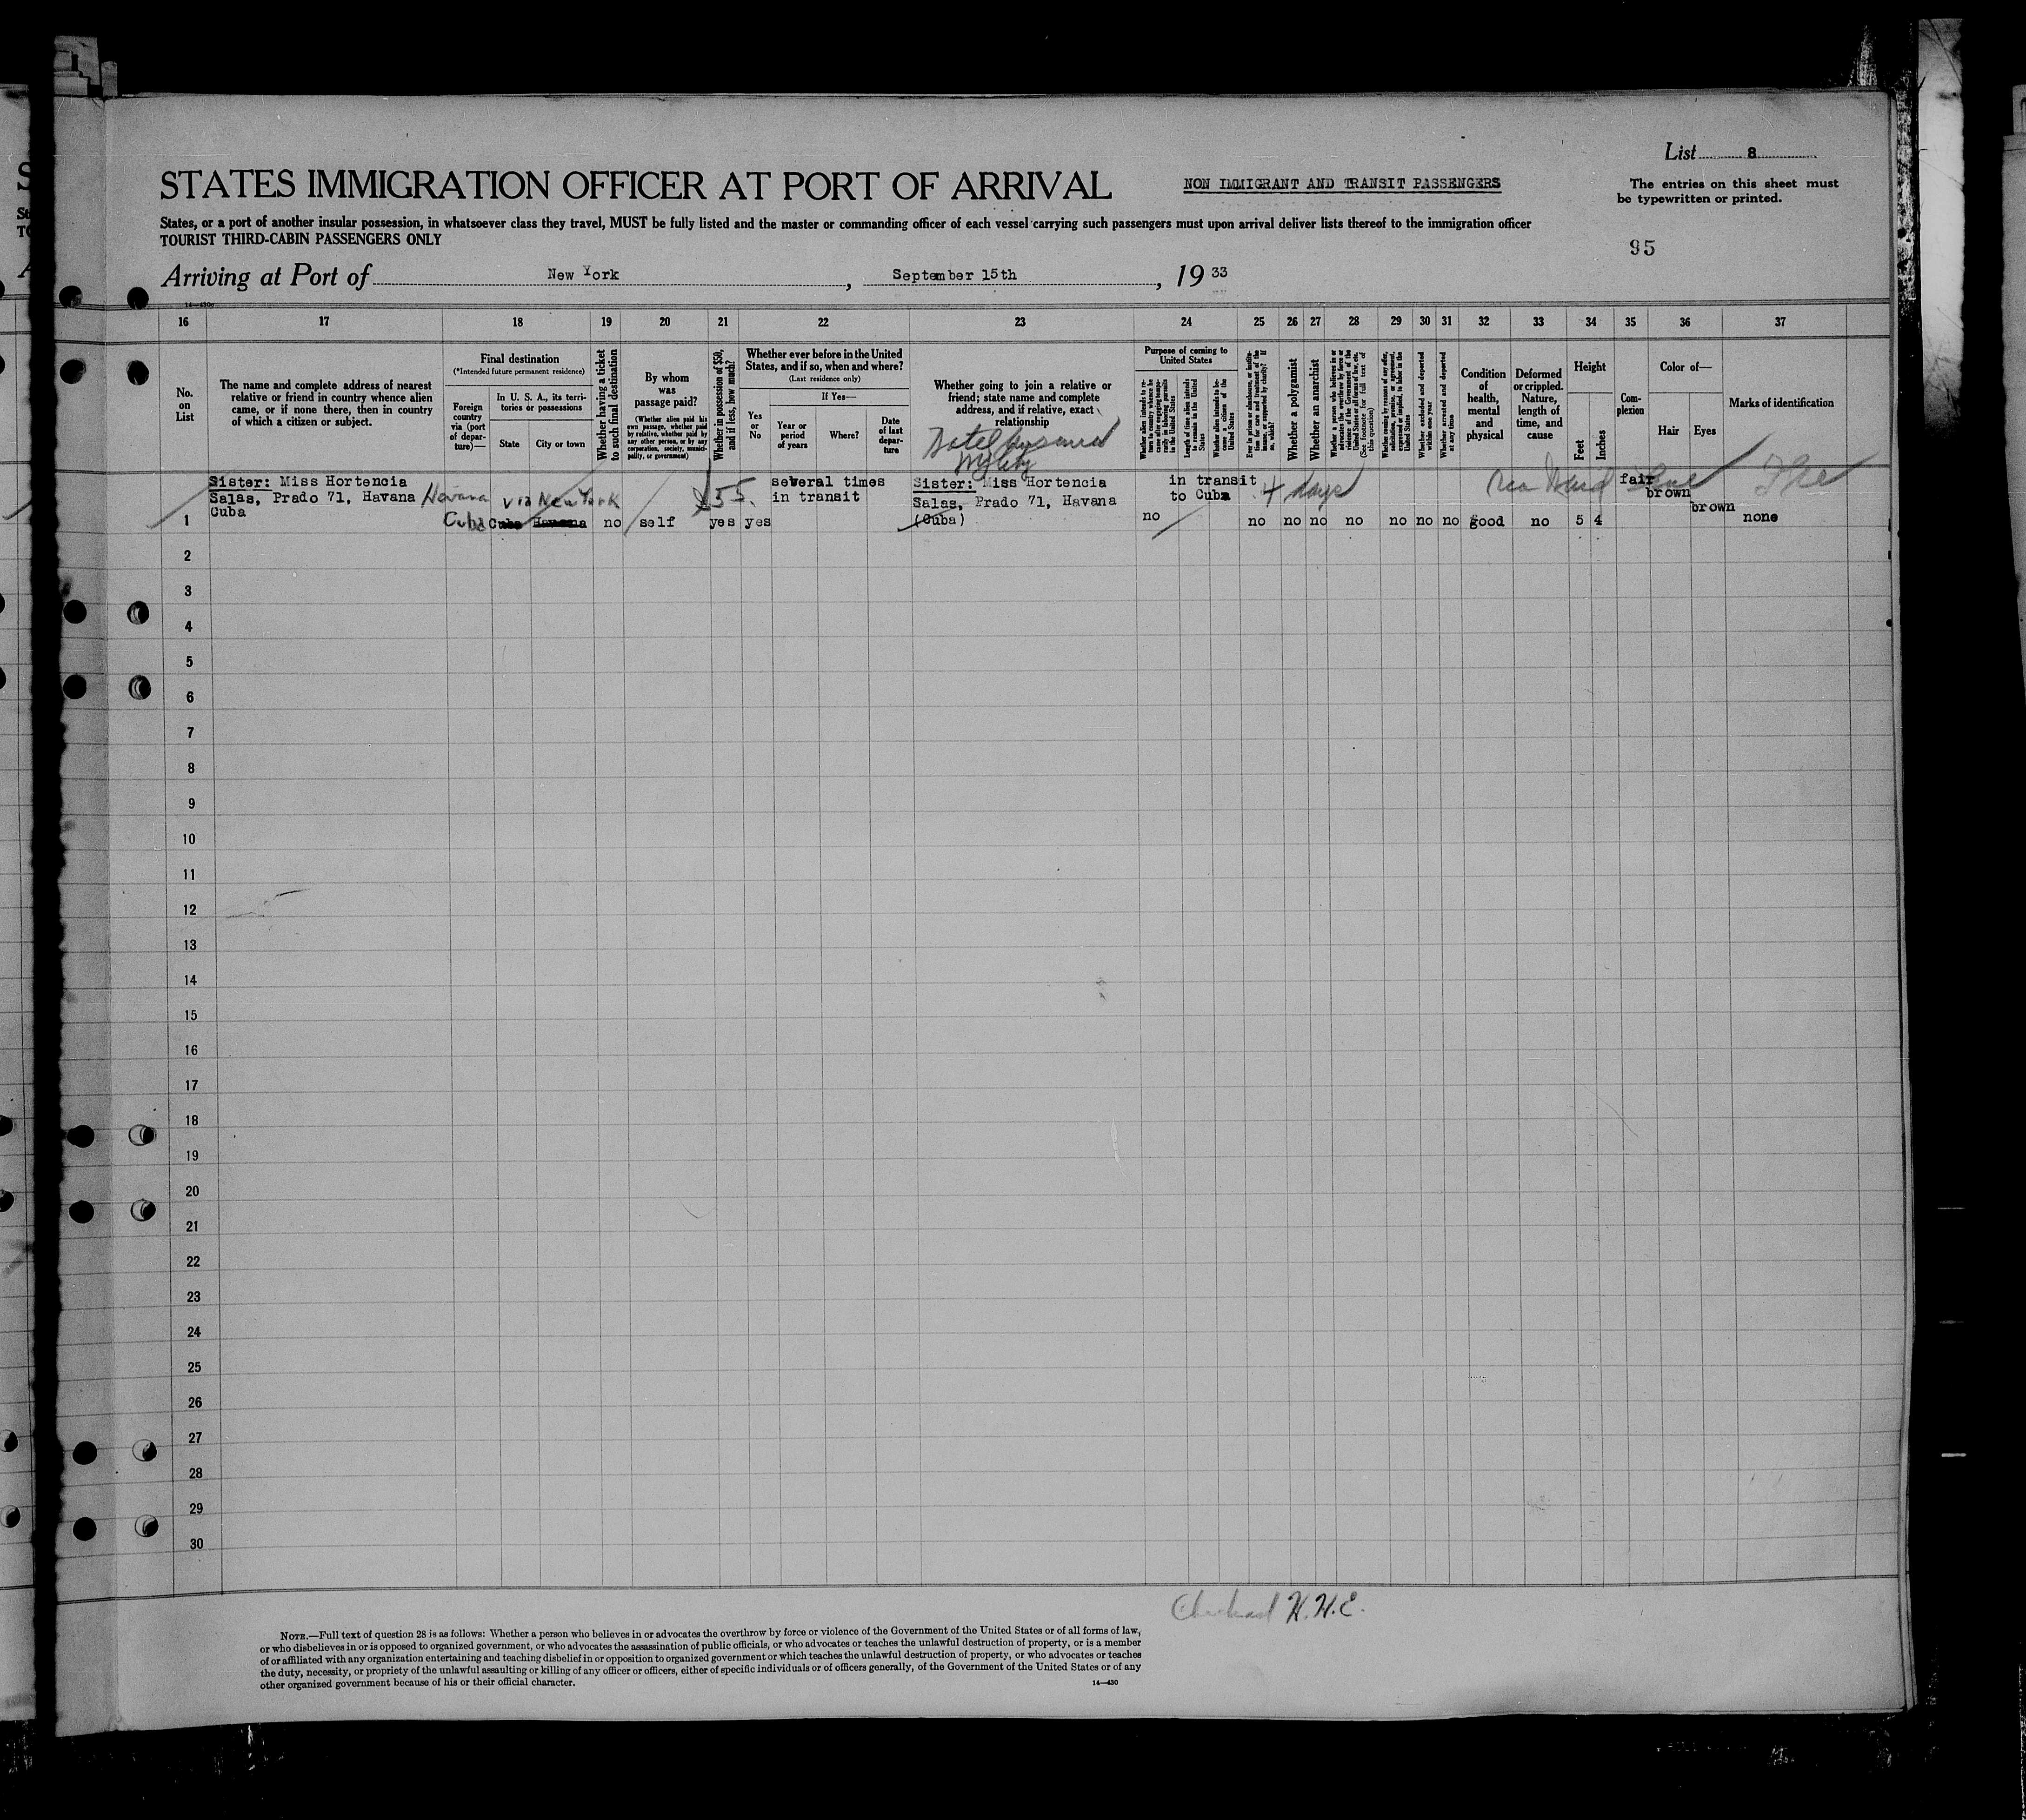 List 8
STATES IMMIGRATION OFFICER AT PORT OF ARRIVAL
NON IMMIGRANT AND TRANSIT PASSENGERS
The entries on this sheet must
be typewritten or printed.
States, or a port of another insular possession, in whatsoever class they travel, MUST be fully listed and the master or commanding officer of each vessel carrying such passengers must upon arrival deliver lists thereof to the immigration officer
TOURIST THIRD-CABIN PASSENGERS ONLY
95
Arriving at Port of New York, September 15th, 19 33
14—430
16 17 18 19 20 21 22 23 24 25 26 27 28 29 30 31 32 33 34 35 36 37
No. on List
The name and complete address of nearest
relative or friend in country whence alien
came, or if none there, then in country
of which a citizen or subject.
Final destination
(*Intended future permanent residence)
Foreign country via (port of departure)—
In U. S. A., its territories or possessions
State
City or town
Whether having a ticket to such final destination
By whom was passage paid?
(Whether alien paid his own passage, whether paid by relative, whether paid by any other person, or by any corporation, society, municipality, or government)
Whether in possession of $50, and if less, how much?
Whether ever before in the United
States, and if so, when and where?
(Last residence only)
Yes or No
If Yes—
Year or period of years
Where?
Date of last departure
Whether going to join a relative or
friend; state name and complete
address, and if relative, exact
relationship
Purpose of coming to United States
Whether alien intends to return to country whence he came after engaging temporarily in laboring pursuits in the United States
Length of time alien intends to remain in the United States
Whether alien intends to become a citizen of the United States
Ever in prison or almshouse, or institution for care and treatment of the insane, or supported by charity? If so, which?
Whether a polygamist
Whether an anarchist
Whether a person who believes in or advocates the overthrow by force or violence of the Government of the United States or all forms of law, etc. (See footnote for full text of this question)
Whether coming by reason of any offer, solicitation, promise, or agreement, expressed or implied, to labor in the United States
Whether excluded and deported within one year
Whether arrested and deported at any time
Condition of health, mental and physical
Deformed or crippled. Nature, length of time, and cause
Height
Feet
Inches
Complexion
Color of—
Hair
Eyes
Marks of identification
Sister: Miss Hortencia
Salas, Prado 71, Havana
Cuba
Havana
Cuba
via New York
Cuba Havana
no
self
$55.
yes yes
several times
in transit
Sister: Miss Hortencia
Salas, Prado 71, Havana
(Cuba)
in transit
to Cuba
4 days
no
no no no no no no no good no 5 4
fair
brown
brown
none
1
2
3
4
5
6
7
8
9
10
11
12
13
14
15
16
17
18
19
20
21
22
23
24
25
26
27
28
29
30
H.H.E.
NOTE.—Full text of question 28 is as follows: Whether a person who believes in or advocates the overthrow by force or violence of the Government of the United States or of all forms of law,
or who disbelieves in or is opposed to organized government, or who advocates the assassination of public officials, or who advocates or teaches the unlawful destruction of property, or is a member
of or affiliated with any organization entertaining and teaching disbelief in or opposition to organized government or which teaches the unlawful destruction of property, or who advocates or teaches
the duty, necessity, or propriety of the unlawful assaulting or killing of any officer or officers, either of specific individuals or of officers generally, of the Government of the United States or of any
other organized government because of his or their official character.
14—430